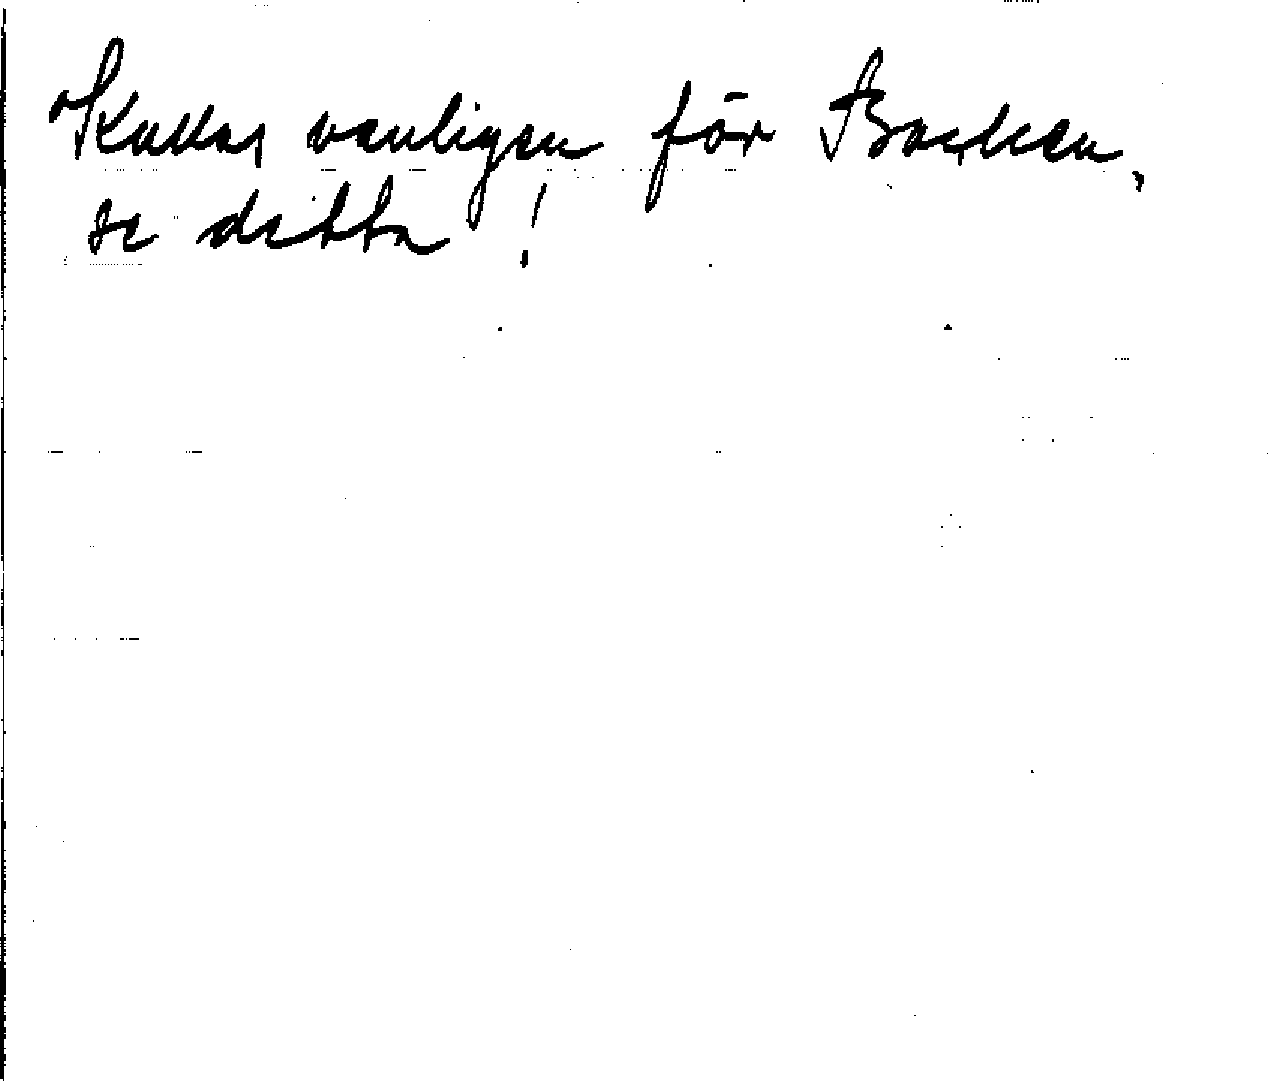 Kallas vanligen för Backen,
se detta!